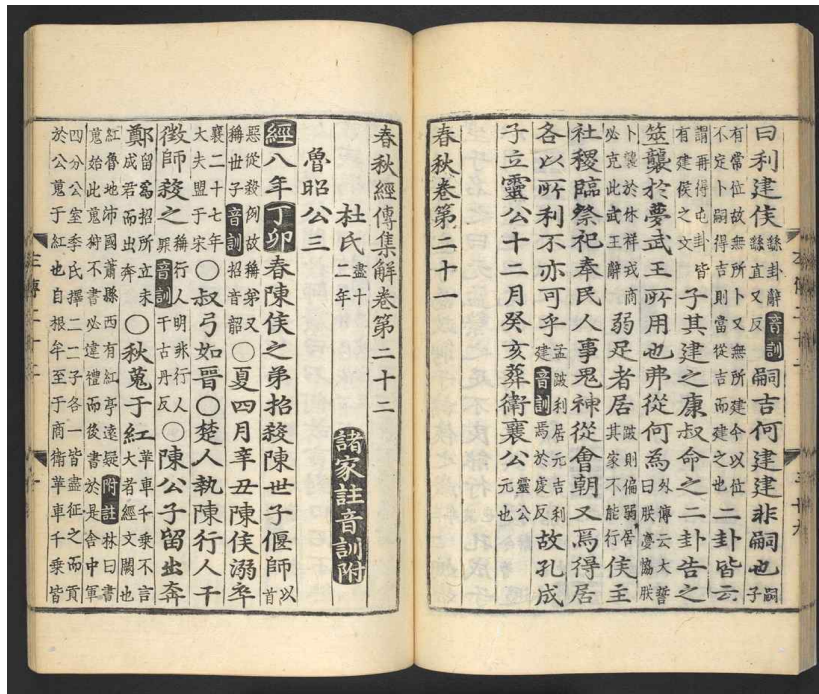 曰利建侯繇卦辭繇直又反音訓嗣吉何建建非嗣也嗣子
有常位故無所卜又無所建今以位不定卜嗣得吉則當從吉而建之也二卦皆云
謂再得屯卦皆有建侯之文子其建之康叔命之二卦告之
筮襲於夢武王所用也弗從何為外傳云大誓曰朕夢協朕
卜襲於休祥戎商必克此武王辭弱足者居跛則偏弱居其家不能行侯主
社稷臨祭祀奉民人事鬼神從會朝又焉得居
各以所利不亦可乎孟跛利居元吉利建音訓焉於虔反故孔成
子立靈公十二月癸亥葬衛襄公靈公元也
春秋卷第二十一
春秋經傳集解卷第二十二
杜氏盡十二年 諸家註音訓附
魯昭公三
經八年丁卯春陳侯之弟招殺陳世子偃師以首
惡從殺例故稱弟又稱世子音訓招音韶○夏四月辛丑陳侯溺卒
襄二十七年大夫盟于宋○叔弓如晉○楚人執陳行人干
徵師殺之稱行人明非行人罪音訓干古丹反○陳公子留出奔
鄭留為招所立未成君而出奔○秋蒐于紅革車千乘不言大者經文闕也
紅魯地沛國蕭縣西有紅亭遠疑附註林曰書蒐始此蒐狩不書必違禮而後書於是舍中軍
四分公室季氏擇二二子各一皆盡征之而貢於公蒐于紅也自根牟至于商衛革車千乘皆